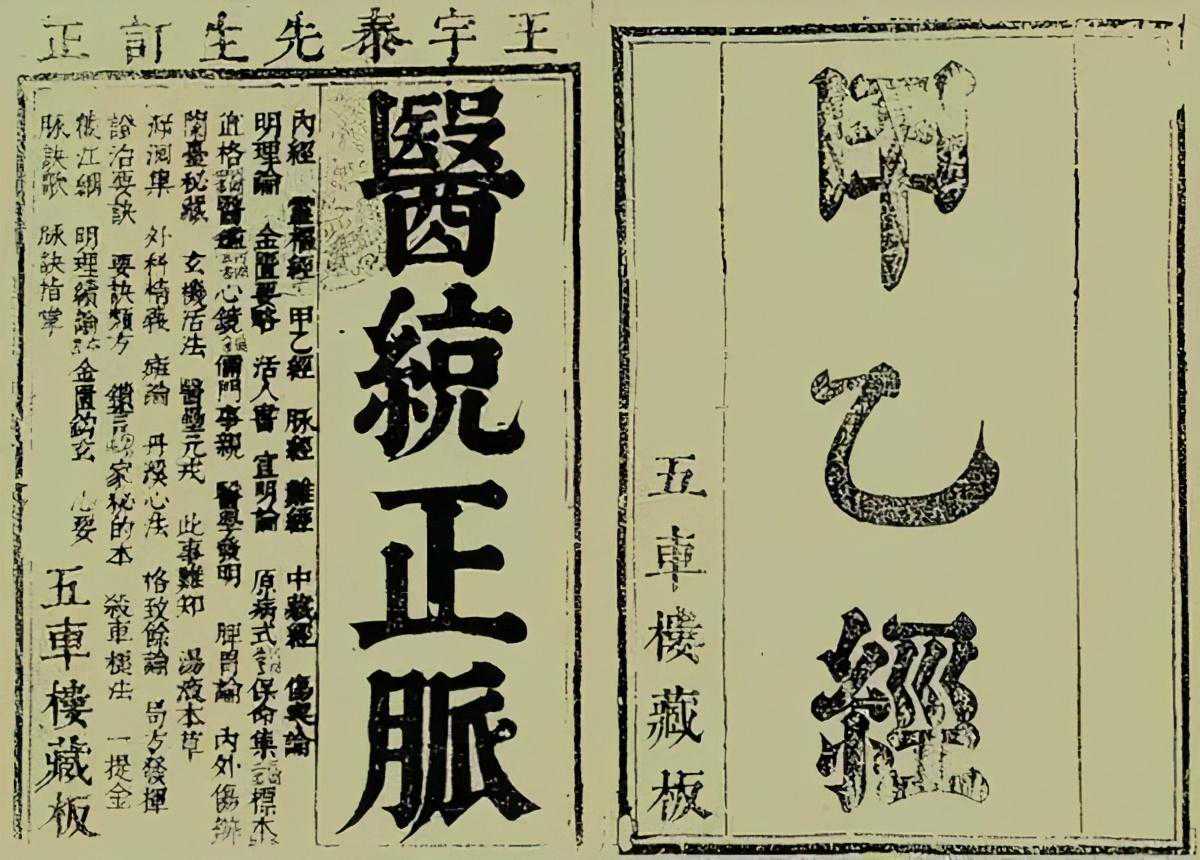 甲乙經
五車樓藏板
王宇泰先生訂正
醫統正脈
內經 靈樞經 甲乙經 脉經 難經 中藏經 傷寒論
明理論 金匱要略 活人書 宣明論 原病式 保命集 標本
直格 醫鑑 心鏡 儒門事親 醫學發明 脾胃論 內外傷辨
蘭臺秘藏 玄機活法 醫壘元戎 此事難知 湯液本草
泝洄集 外科精義 癰論 丹溪心法 格致餘論 局方發揮
證治要訣 要訣類方 家秘的本 殺車槌法 一提金
截江綱 明理續論 金匱鈎玄 心要
脉訣歌 脉訣指掌
五車樓藏板